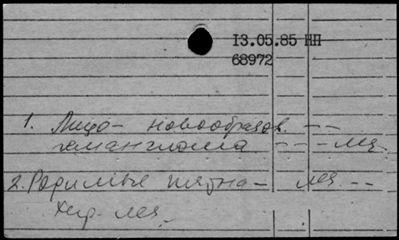 13.05.85 НП
68972
1. Лицо - новообразов. - - -
гемангиома - - - леч.
2. Родимые пятна - леч. - - -
хир. леч.